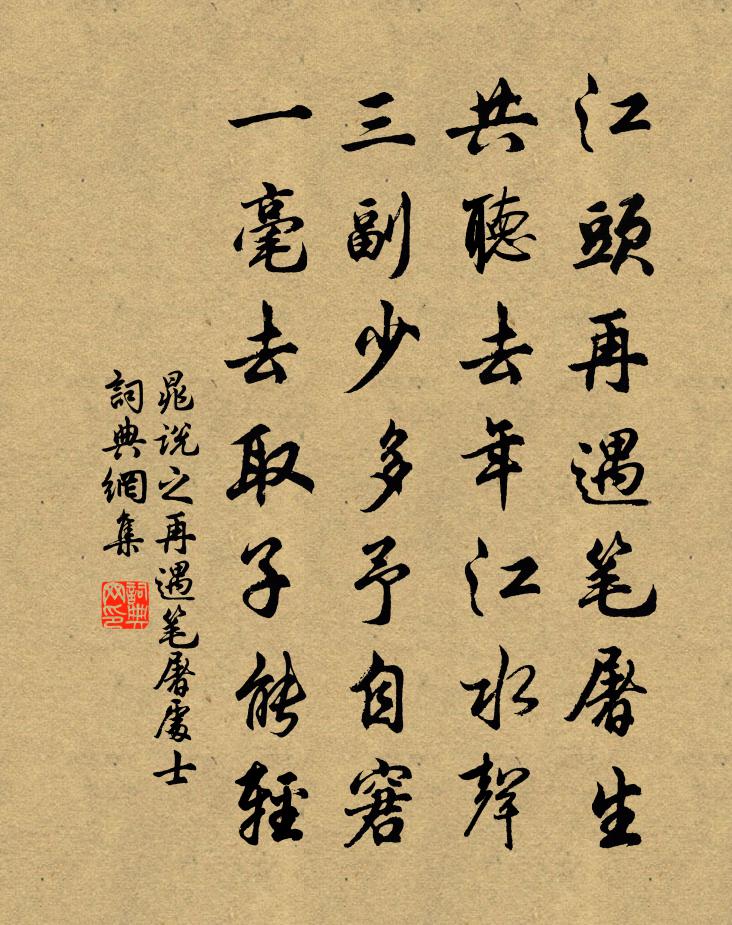 江頭再遇笔屠生
共聽去年江水聲
三副少多予自窘
一毫去取子能輕
晁说之再遇笔屠處士
詞典網集
詞典网印